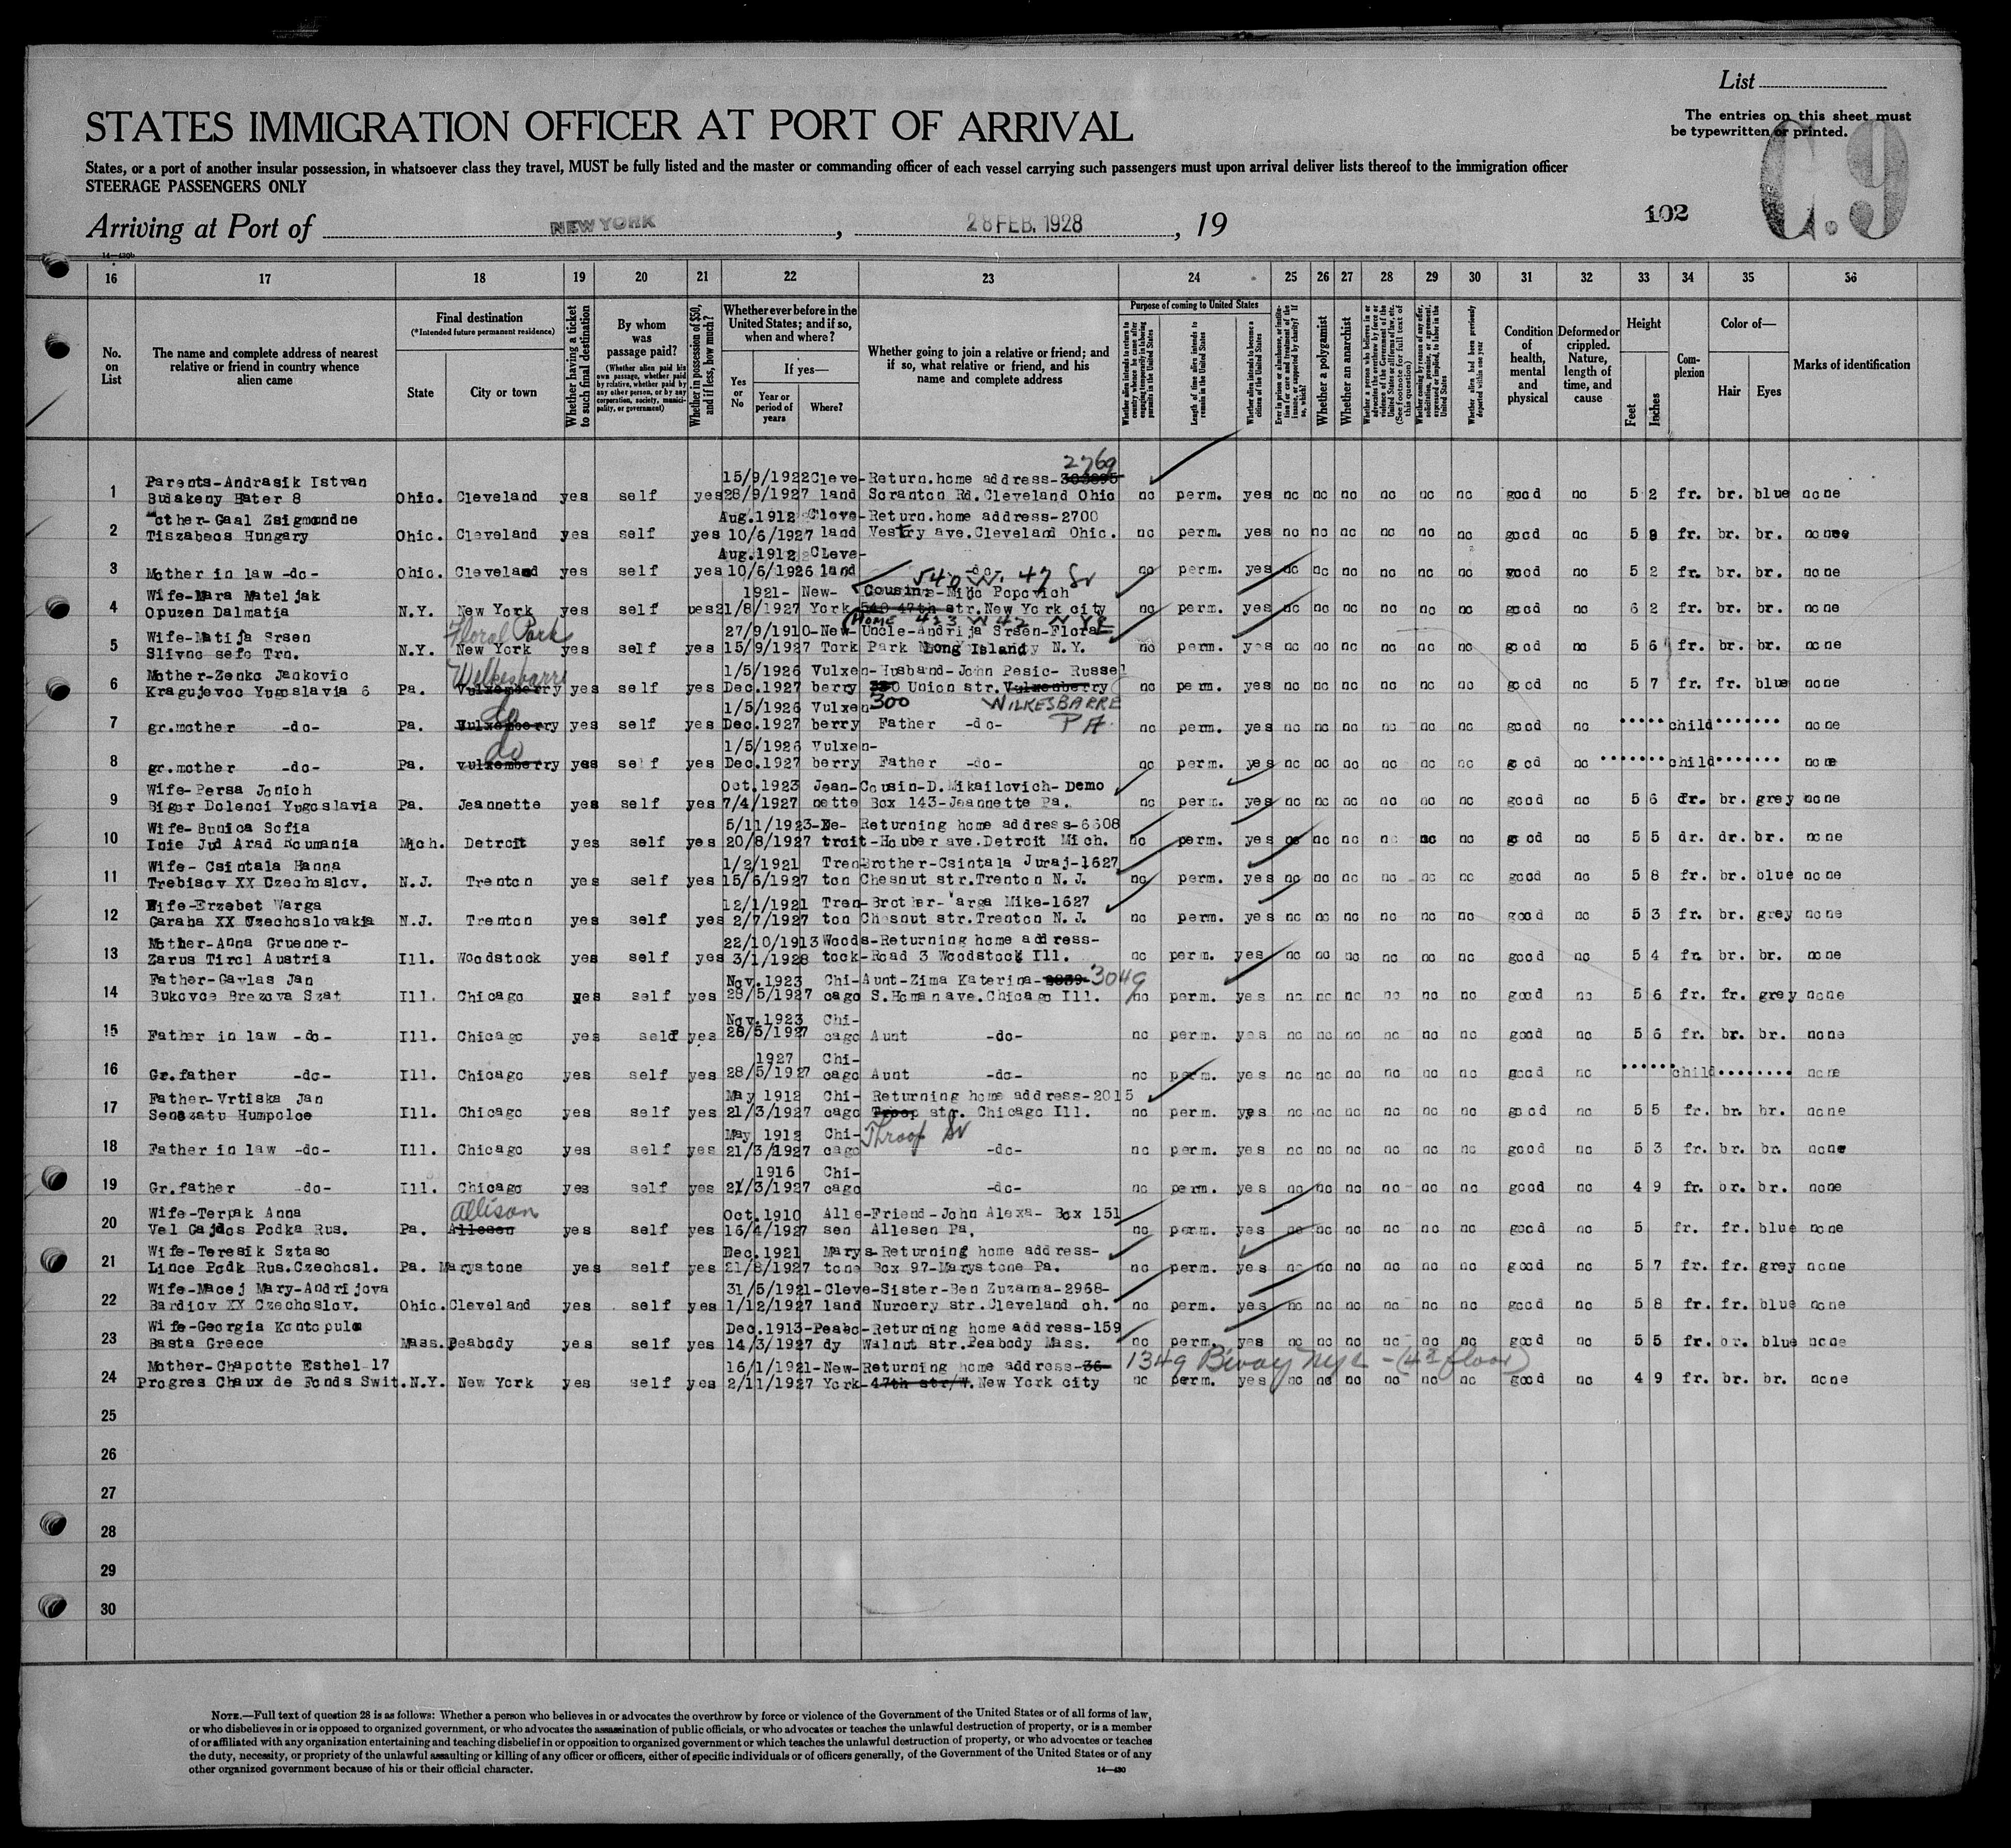 List
The entries on this sheet must
be typewritten or printed.
C.9
STATES IMMIGRATION OFFICER AT PORT OF ARRIVAL
States, or a port of another insular possession, in whatsoever class they travel, MUST be fully listed and the master or commanding officer of each vessel carrying such passengers must upon arrival deliver lists thereof to the immigration officer
STEERAGE PASSENGERS ONLY
102
Arriving at Port of NEW YORK, 28 FEB. 1928, 19
14—430b
16 17 18 19 20 21 22 23 24 25 26 27 28 29 30 31 32 33 34 35 36
No. on List
The name and complete address of nearest relative or friend in country whence alien came
Final destination
(*Intended future permanent residence)
State
City or town
Whether having a ticket to such final destination
By whom was passage paid?
(Whether alien paid his own passage, whether paid by relative, whether paid by any other person, or by any corporation, society, municipality, or government)
Whether in possession of $50, and if less, how much?
Whether ever before in the United States; and if so, when and where?
Yes or No
If yes—
Year or period of years
Where?
Whether going to join a relative or friend; and if so, what relative or friend, and his name and complete address
Purpose of coming to United States
Whether alien intends to return to country whence he came after engaging temporarily in laboring pursuits in the United States
Length of time alien intends to remain in the United States
Whether alien intends to become a citizen of the United States
Ever in prison or almshouse, or institution for care and treatment of the insane, or supported by charity? If so, which?
Whether a polygamist
Whether an anarchist
Whether a person who believes in or advocates the overthrow by force or violence of the Government of the United States or all forms of law, etc. (See footnote for full text of this question)
Whether coming by reason of any offer, solicitation, promise, or agreement, expressed or implied, to labor in the United States
Whether alien had been previously deported within one year
Condition of health, mental and physical
Deformed or crippled. Nature, length of time, and cause
Height
Feet
Inches
Complexion
Color of—
Hair
Eyes
Marks of identification
2769
Parents-Andrasik Istvan 15/9/1922 Cleve-Return.home address-
1 Budakeny Hater 8 Ohio. Cleveland yes self yes 28/9/1927 land Scranton Rd.Cleveland Ohio no perm. yes no no no no no no good no 5 2 fr. br. blue none
other-Gaal Zsigmondne Aug.1912 Cleve-Return.home address-2700
2 Tiszabecs Hungary Ohio. Cleveland yes self yes 10/6/1927 land Vestry ave.Cleveland Ohio. no perm. yes no no no no no no good no 5 9 fr. br. br. none
Aug.1912 Cleve-
3 Mother in law -do- Ohio. Cleveland yes self yes 10/6/1926 land -do- no perm. yes no no no no no no good no 5 2 fr. br. br. none
540 W. 47 St
Wife-Mara Mateljak 1921- New- Cousin-Miho Popovich
4 Opuzen Dalmatia N.Y. New York yes self yes 21/8/1927 York 540 47th str.New York city no perm. yes no no no no no no good no 6 2 fr. br. br. none
Floral Park (HOME 433 W 42 N Y C
Wife-Matija Srsen 27/9/1910-New-Uncle-Andrija Srsen-Floral
5 Slivno selo Trn. N.Y. New York yes self yes 15/9/1927 York Park Long Island N.Y. no perm. yes no no no no no no good no 5 6 fr. br. br. none
Wilkesbarre
Mother-Zenko Jankovic 1/5/1926 Vulxen-Husband-John Pesic- Russel
6 Kragujevoc Yugoslavia 6 Pa. Vulxemberry yes self yes Dec.1927 berry Union str.Vulxenberry no perm. yes no no no no no no good no 5 7 fr. fr. blue none
do 1/5/1926 Vulxen- 300 WILKESBARRE
7 gr.mother -do- Pa. Vulxemberry yes self yes Dec.1927 berry Father -do- PA no perm. yes no no no no no no good no child none
do 1/5/1926 Vulxen-
8 gr.mother -do- Pa. vulxemberry yes self yes Dec.1927 berry Father -do- no perm. yes no no no no no no good no child none
Wife-Persa Jonich Oct.1923 Jean-Cousin-D.Mikailovich- Demo
9 Biger Dolenci Yugoslavia Pa. Jeannette yes self yes 7/4/1927 nette Box 143-Jeannette Pa. no perm. yes no no no no no no good no 5 6 dr. br. grey none
Wife-Bunica Sofia 5/11/1923-De- Returning home address-6608
10 Inie Jud Arad Roumania Mich. Detroit yes self yes 20/8/1927 troit-Houber ave.Detroit Mich. no perm. yes no no no no no no good no 5 5 dr. dr. br. none
Wife- Csintala Hanna 1/2/1921 Tren-Brother-Csintala Juraj-1627
11 Trebisov XX Czechoslov. N.J. Trenton yes self yes 15/6/1927 ton Chesnut str.Trenton N.J. no perm. yes no no no no no no good no 5 8 fr. br. blue none
Wife-Erzebet Warga 12/1/1921 Tren-Brother-Varga Mike-1627
12 Garaha XX Czechoslovakia N.J. Trenton yes self yes 2/7/1927 ton Chesnut str.Trenton N.J. no perm. yes no no no no no no good no 5 3 fr. br. grey none
Mother-Anna Gruenner- 22/10/1913 Woods-Returning home address-
13 Zarus Tirol Austria Ill. Woodstock yes self yes 3/1/1928 tock-Road 3 Woodstock Ill. no perm. yes no no no no no no good no 5 4 fr. br. br. none
Father-Gavlas Jan Nov.1923 Chi-Aunt-Zima Katerina-2839- 3049
14 Bukovce Brezova Szat Ill. Chicago yes self yes 28/5/1927 cago S.Homan ave.Chicago Ill. no perm. yes no no no no no no good no 5 6 fr. fr. grey none
Nov.1923 Chi-
15 Father in law -do- Ill. Chicago yes self yes 28/5/1927 cago Aunt -do- no perm. yes no no no no no no good no 5 6 fr. br. br. none
1927 Chi-
16 Gr.father -do- Ill. Chicago yes self yes 28/5/1927 cago Aunt -do- no perm. yes no no no no no no good no child none
Father-Vrtiska Jan May 1912 Chi- Returning home address-2015
17 Senozatu Humpolce Ill. Chicago yes self yes 21/3/1927 cago Troop str. Chicago Ill. no perm. yes no no no no no no good no 5 5 fr. br. br. none
May 1912 Chi- Throop St
18 Father in law -do- Ill. Chicago yes self yes 21/3/1927 cago -do- no perm. yes no no no no no no good no 5 3 fr. br. br. none
1916 Chi-
19 Gr.father -do- Ill. Chicago yes self yes 21/3/1927 cago -do- no perm. yes no no no no no no good no 4 9 fr. br. br. none
Allison
Wife-Terpak Anna Oct.1910 Alle-Friend-John Alexa- Box 151
20 Vel Gajdos Podka Rus. Pa. Allesen yes self yes 16/4/1927 sen Allesen Pa. no perm. yes no no no no no no good no 5 fr. fr. blue none
Wife-Teresik Sztaso Dec.1921 Marys-Returning home address-
21 Lince Podk Rus.Czechosl. Pa. Marystone yes self yes 21/8/1927 tone Box 97-Marystone Pa. no perm. yes no no no no no no good no 5 7 fr. fr. grey none
Wife-Macej Mary-Andrijova 31/5/1921-Cleve-Sister-Ben Zuzanna-2968-
22 Bardiov XX Czechoslov. Ohio. Cleveland yes self yes 1/12/1927 land Nurcery str.Cleveland oh. no perm. yes no no no no no no good no 5 8 fr. fr. blue none
Wife-Georgia Kontopulo Dec.1913-Peabo-Returning home address-159
23 Basta Greece Mass. Peabody yes self yes 14/3/1927 dy Walnut str.Peabody Mass. no perm. yes no no no no no no good no 5 5 fr. br. blue none
Mother-Chapotte Esthel 17 16/1/1921-New-Returning home address-36- 1349 B'way NYC - (4th floor)
24 Progres Chaux de Fonds Swit. N.Y. New York yes self yes 2/11/1927 York-47th str/W. New York city no perm. yes no no no no no no good no 4 9 fr. br. br. none
25
26
27
28
29
30
NOTE.—Full text of question 28 is as follows: Whether a person who believes in or advocates the overthrow by force or violence of the Government of the United States or of all forms of law,
or who disbelieves in or is opposed to organized government, or who advocates the assassination of public officials, or who advocates or teaches the unlawful destruction of property, or is a member
of or affiliated with any organization entertaining and teaching disbelief in or opposition to organized government or which teaches the unlawful destruction of property, or who advocates or teaches
the duty, necessity, or propriety of the unlawful assaulting or killing of any officer or officers, either of specific individuals or of officers generally, of the Government of the United States or of any
other organized government because of his or their official character.
14—430